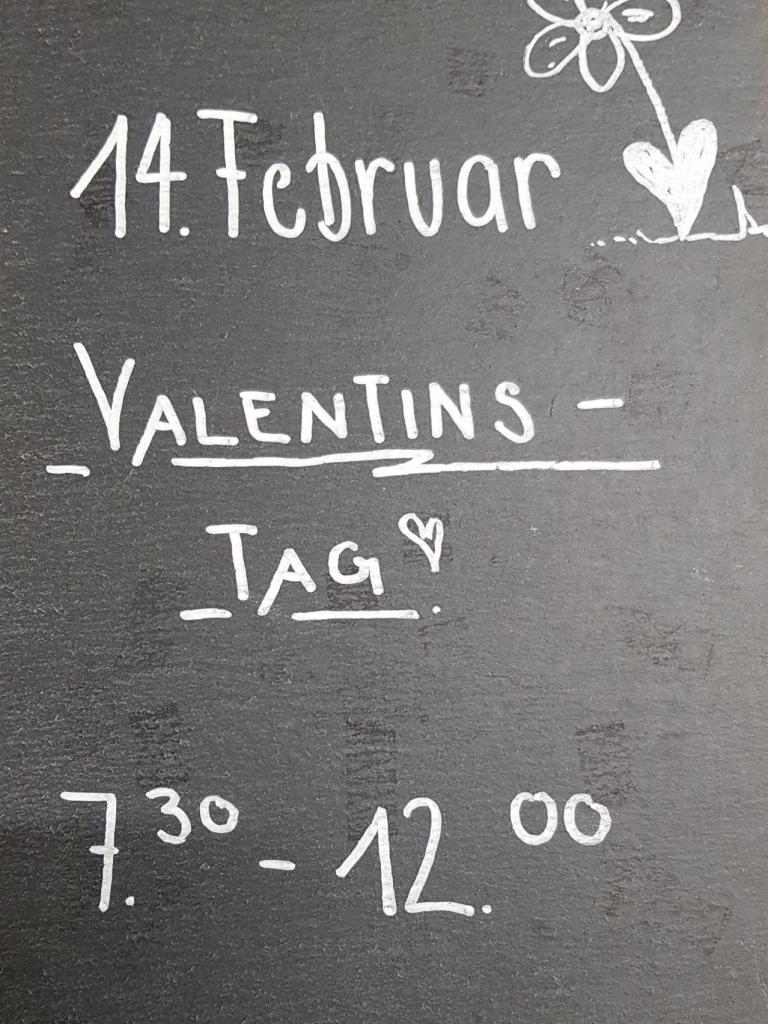 14. Februar
VALENTINS -
TAG
7.30 - 12.00